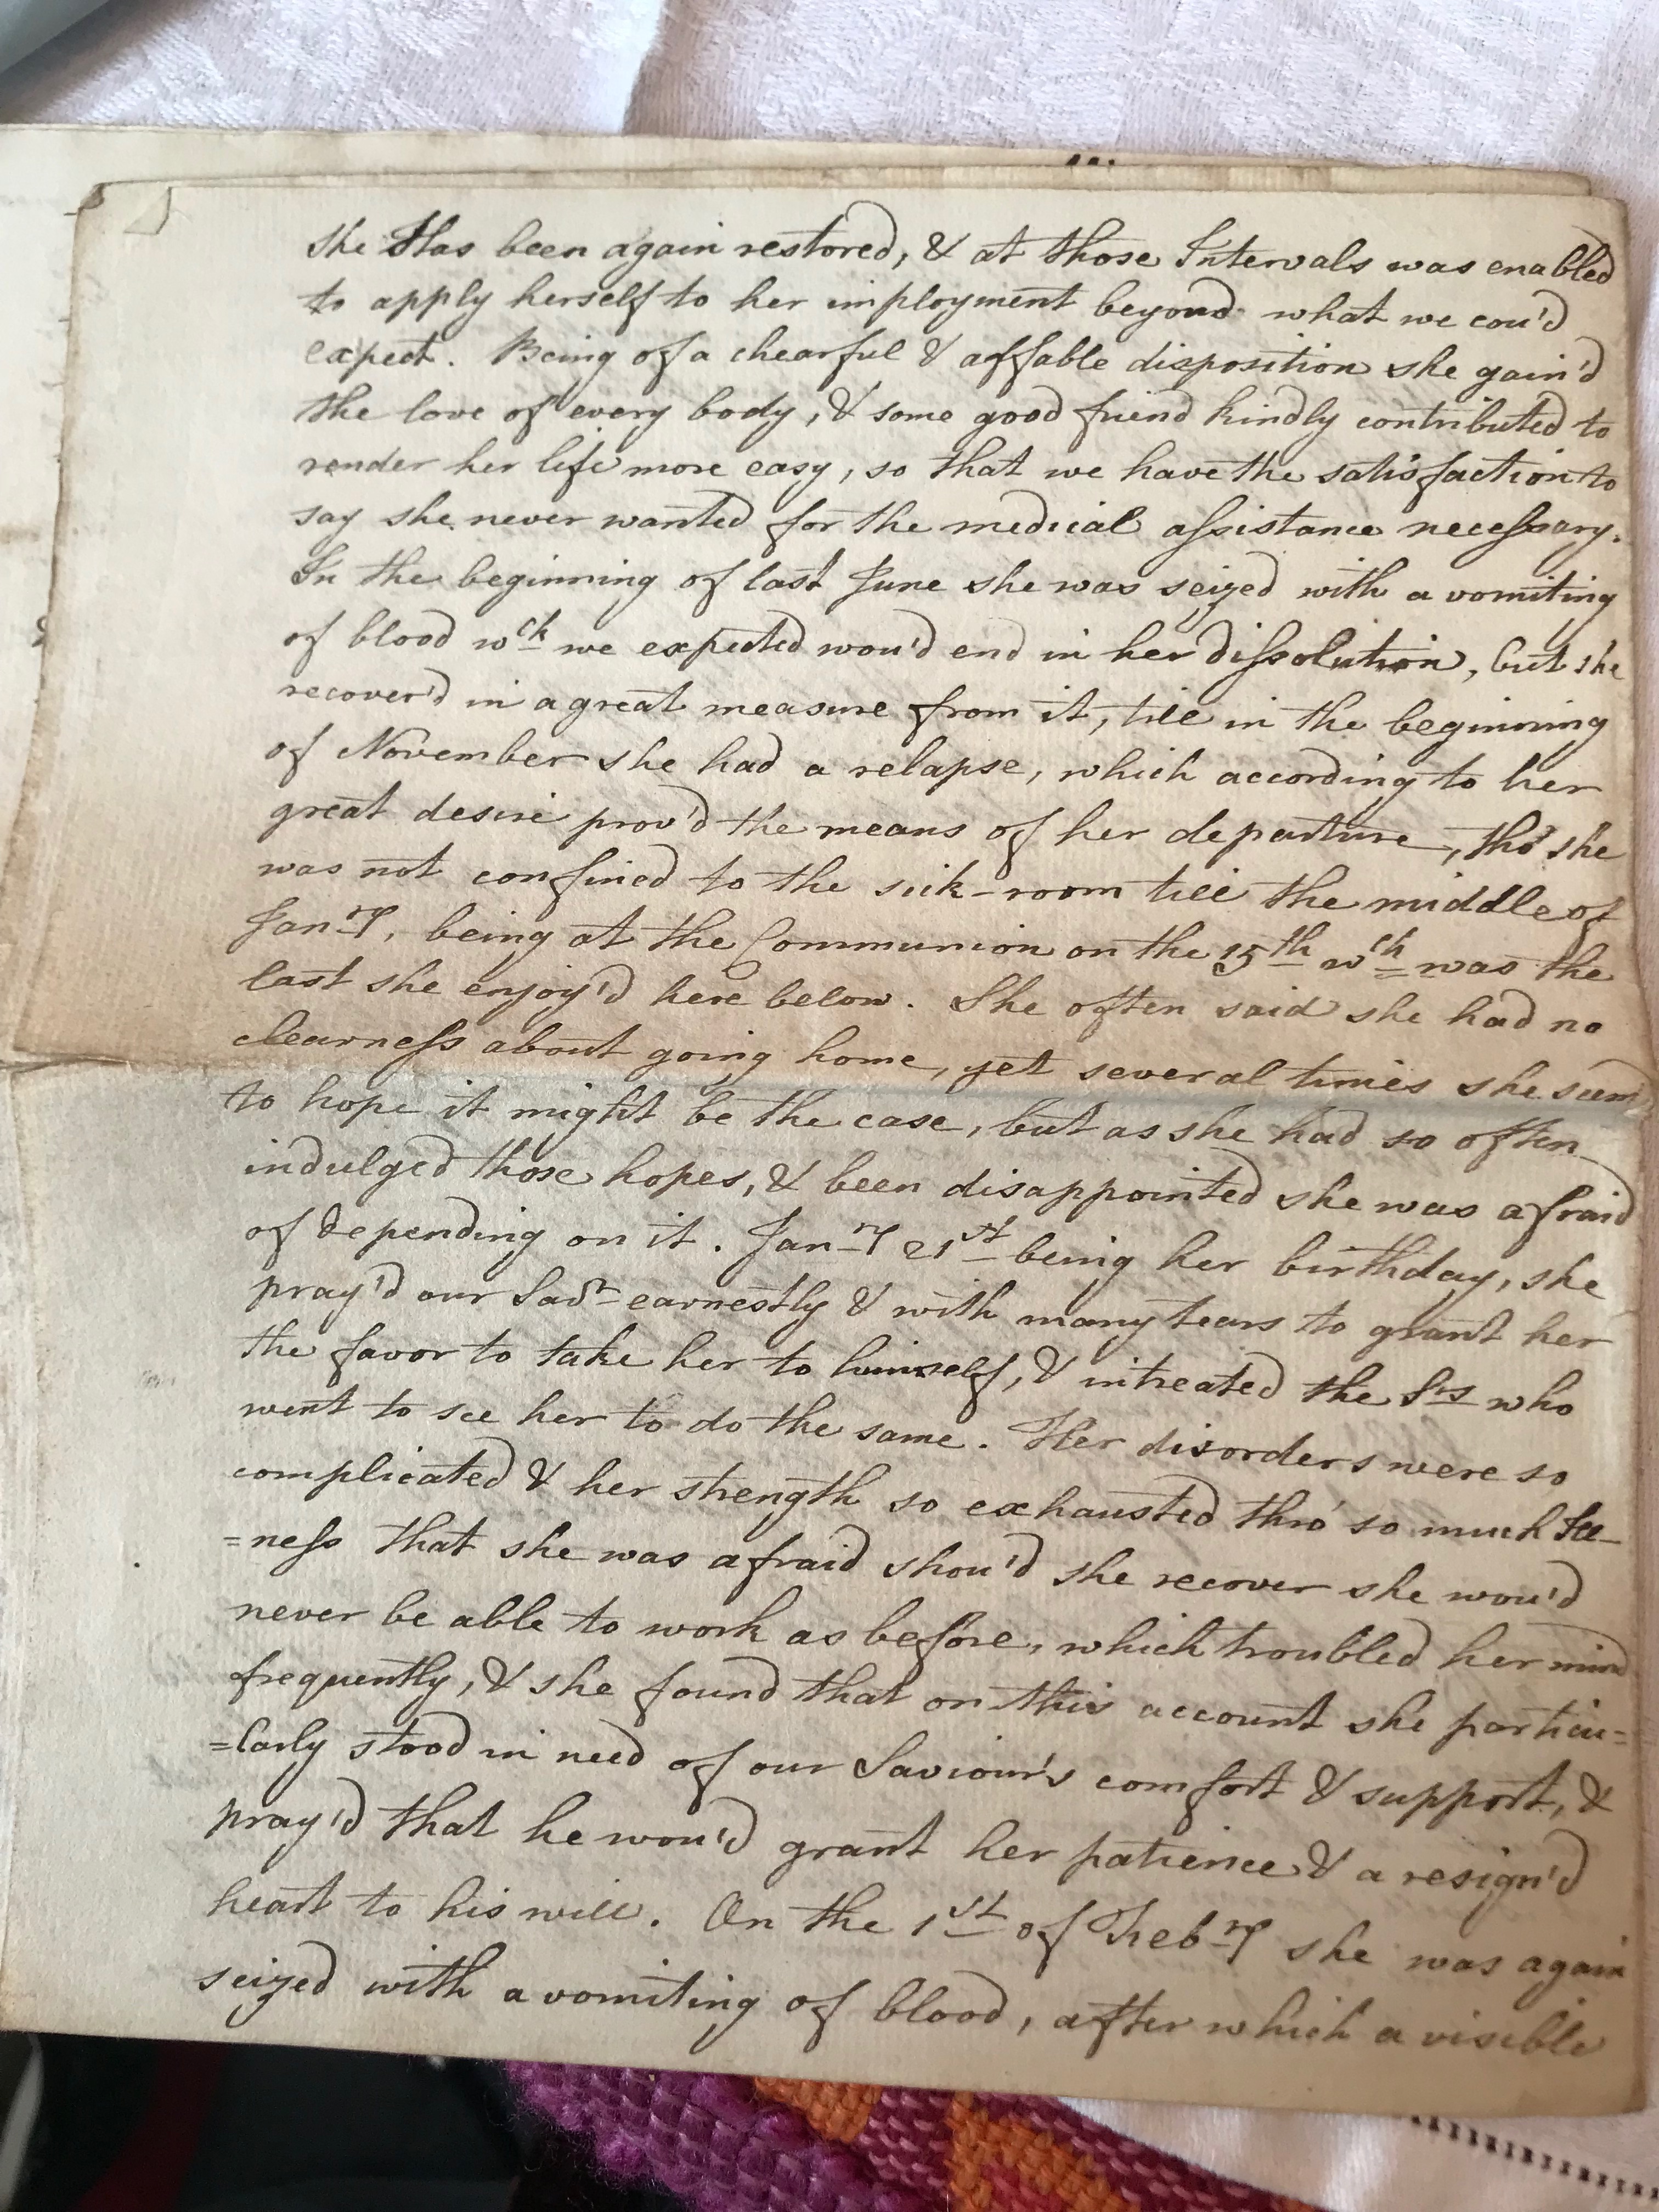 she Has been again restored, & at those Intervals was enabled
to apply herself to her imployment beyond what we cou'd
expect. Being of a chearful & affable disposition she gain'd
the love of every body, & some good friend kindly contributed to
render her life more easy, so that we have the satisfaction to
say she never wanted for the medical assistance necessary.
In the beginning of last June she was seized with a vomiting
of blood wch we expected wou'd end in her dissolution, but she
recover'd in a great measure from it, till in the beginning
of November she had a relapse, which according to her
great desire prov'd the means of her departure, tho' she
was not confined to the sick-room till the middle of
Janry, being at the Communion on the 15th wch was the
last she enjoy'd here below. She often said she had no
clearness about going home, yet several times she seem'd
to hope it might be the case, but as she had so often
indulged those hopes, & been disappointed she was afraid
of depending on it. Janry 21st being her birthday, she
pray'd our Savr earnestly & with many tears to grant her
the favor to take her to himself, & intreated the Srs who
went to see her to do the same. Her disorders were so
complicated & her strength so exhausted thro' so much Ill-
=ness that she was afraid shou'd she recover she wou'd
never be able to work as before, which troubled her mind
frequently, & she found that on this account she particu=
=larly stood in need of our Saviour's comfort & support, &
pray'd that he wou'd grant her patience & a resign'd
heart to his will. On the 1st of Febry she was again
seized with a vomiting of blood, after which a visible